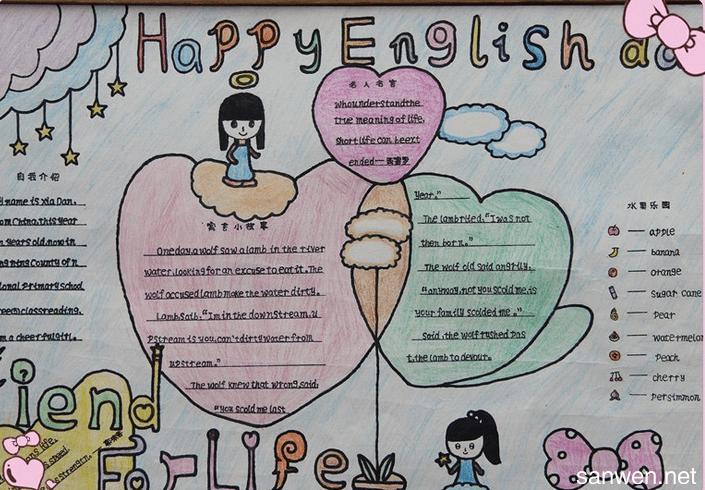 Happy English
名人名言
whounderstandthe
true meaning of life,
short life can beext
ended—西塞罗
自我介绍
name is Xia Dan.
China.this year
years old.now in
County of n
primary school
reading.
a cheerful girl.
寓言小故事
Oneday.a wolf saw a lamb in the river
water.looking for an excuse to eat it. The
wolf accused lamb make the water dirty.
Lamb saib. "Im in the downstream.u
pstream is you.can't dirty water from
upstream."
The wolf knew that wrong.said:
"you scold me last
year."
The lamb ried."I was not
then born."
The wolf old said angrily.
"anyway.not you scold me.is
your family scolded me."
Said.the wolf rushed pas
t.the lamb to devour.
水果乐园
— apple
— banana
— orange
— sugar cane
— pear
— watermelon
— peach
— cherry
— persimmon
iend
For life
life.
speed.
strength.—
sanwen.net